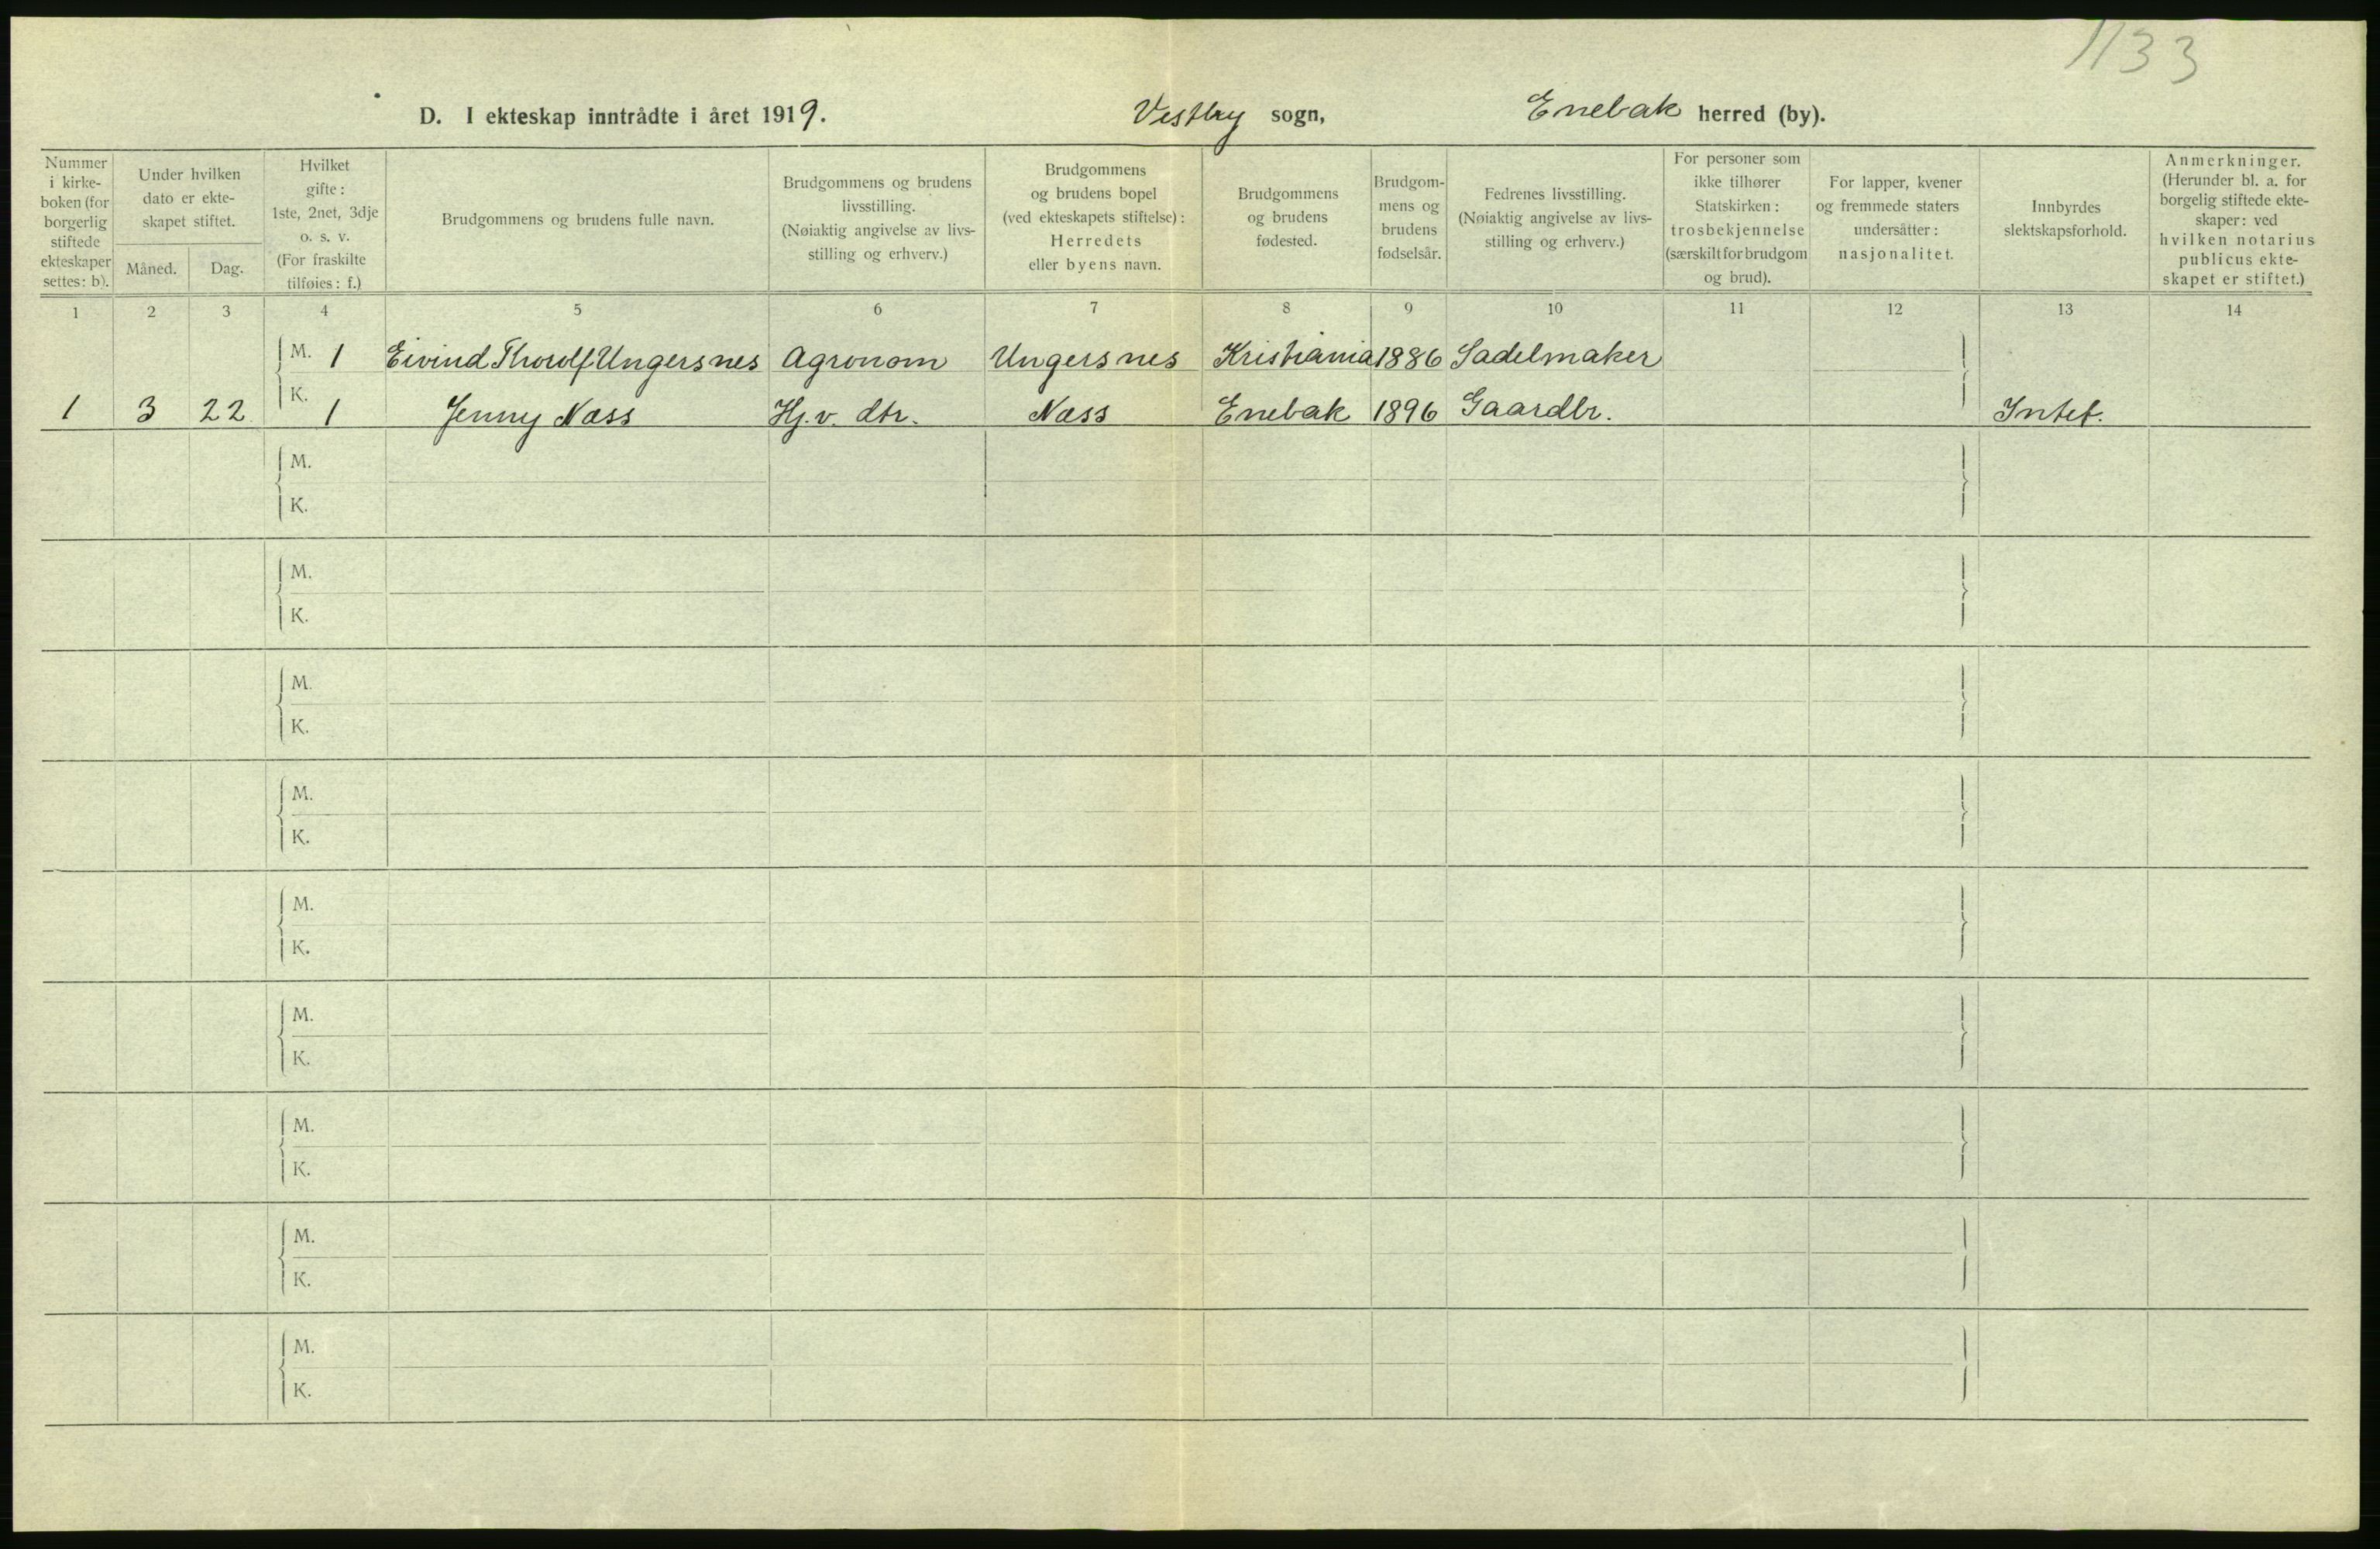 1133
D. I ekteskap inntrådte i året 1919. Vestby sogn, Enebak herred (by).
Nummer i kirke-boken (for borgerlig stiftede ekteskaper settes: b).
Under hvilken dato er ekte-skapet stiftet.
Måned. Dag.
Hvilket gifte: 1ste, 2net, 3dje o. s. v. (For fraskilte tilføies: f.)
Brudgommens og brudens fulle navn.
Brudgommens og brudens livsstilling. (Nøiaktig angivelse av livs-stilling og erhverv.)
Brudgommens og brudens bopel (ved ekteskapets stiftelse): Herredets eller byens navn.
Brudgommens og brudens fødested.
Brudgom-mens og brudens fødselsår.
Fedrenes livsstilling. (Nøiaktig angivelse av livs-stilling og erhverv.)
For personer som ikke tilhører Statskirken: trosbekjennelse (særskilt for brudgom og brud).
For lapper, kvener og fremmede staters undersåtter: nasjonalitet.
Innbyrdes slektskapsforhold.
Anmerkninger. (Herunder bl. a. for borgelig stiftede ekte-skaper: ved hvilken notarius publicus ekte-skapet er stiftet.)
1 2 3 4 5 6 7 8 9 10 11 12 13 14
M. 1 Eivind Thorolf Ungersnes Agronom Ungersnes Kristiania 1886 Sadelmaker
1 3 22 K. 1 Jenny Næss Hj. v. dtr. Næss Enebak 1896 Gaardbr. Intet.
M.
K.
M.
K.
M.
K.
M.
K.
M.
K.
M.
K.
M.
K.
M.
K.
M.
K.